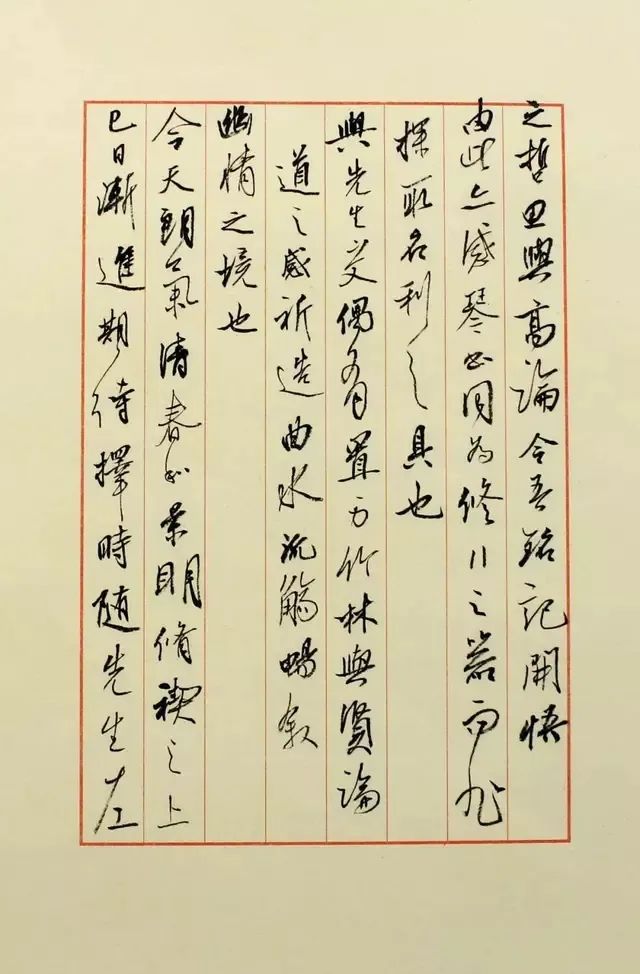 之哲思與高論令吾銘記開悟
由此亦感琴書同為修行之器而非
探取名利之具也
與先生交偶有置身竹林與賢論
道之感祈造曲水流觴暢敘
幽情之境也
今天朗氣清春和景明脩禊之上
巳日漸進期待擇時隨先生左